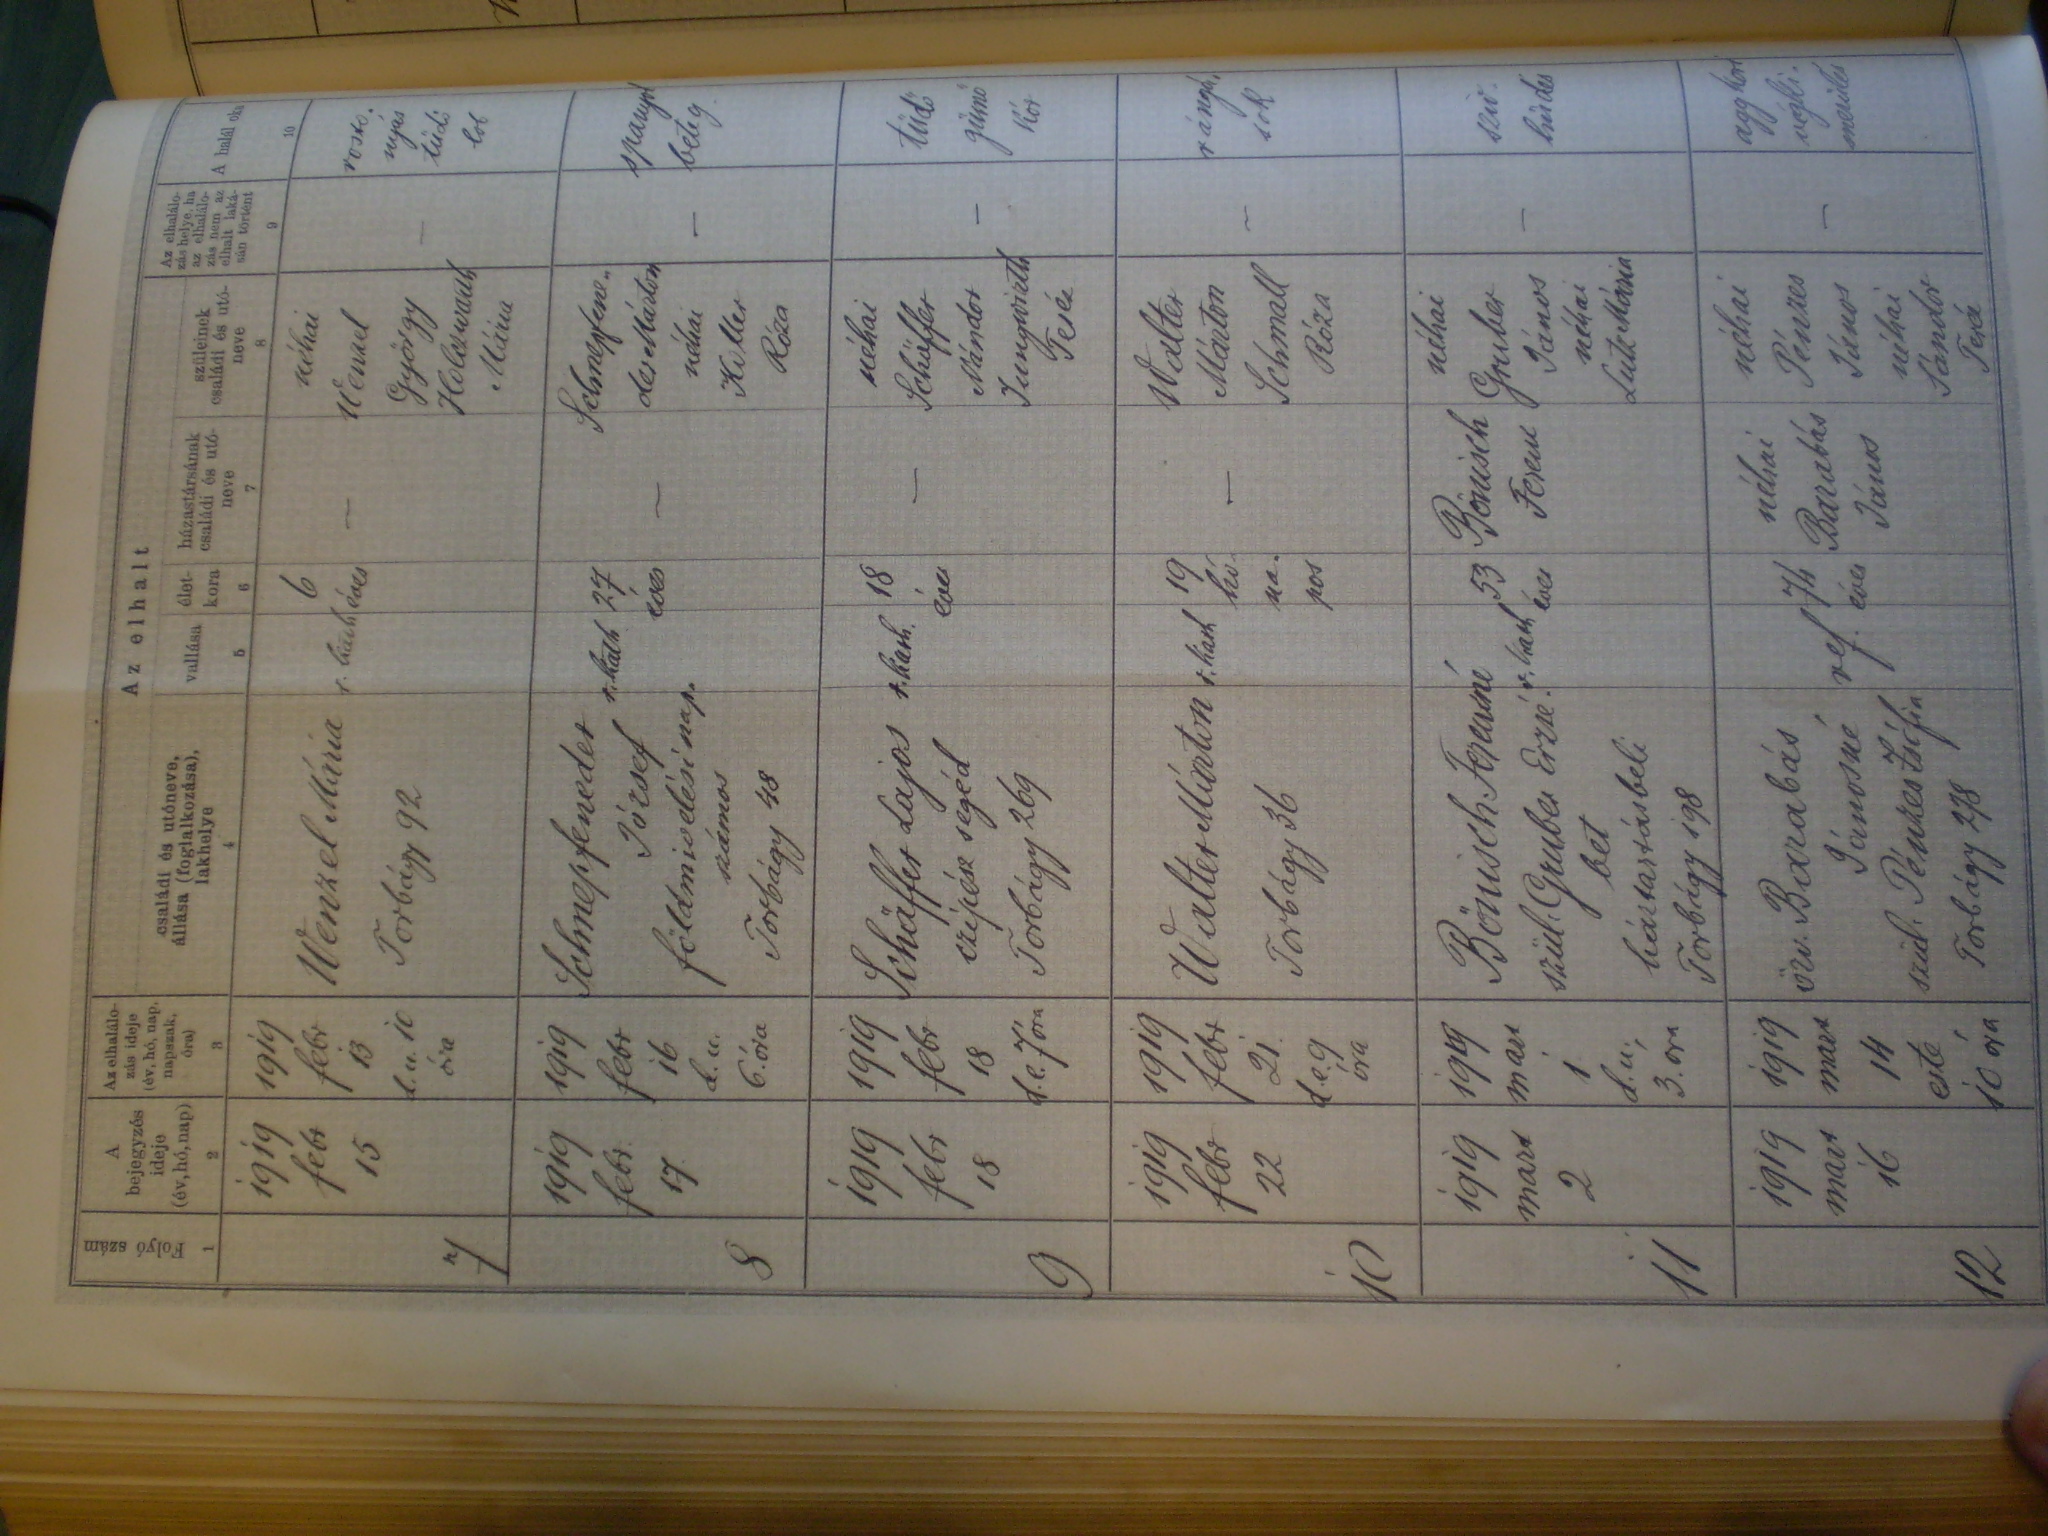 Az elhalt
Folyó szám
A
bejegyzés
ideje
(év, hó, nap)
Az elhalálo-
zás ideje
(év, hó, nap,
napszak,
óra)
családi és utóneve,
állása (foglalkozása),
lakhelye
vallása
élet-
kora
házastársának
családi és utó-
neve
szüleinek
családi és utó-
neve
Az elhalálo-
zás helye, ha
az elhalálo-
zás nem az
elhalt laká-
sán történt
A halál oka
1
2
3
4
5
6
7
8
9
10
7
1919
febr
15
1919
febr
13
d. u. 10
óra
Wenzel Mária
Torbágy 92
r. kath
6
éves
—
néhai
Wenzel
György
Mária
—
tüdő
lob
8
1919
febr.
17.
1919
febr
16
d. u.
6. óra
Schmepfeneder
József
földmivelési nap.
számos
Torbágy 48
r. kath
27
éves
—
Schmepfene-
der Márton
néhai
Holler
Róza
—
spanyol
beteg.
9
1919
febr
18
1919
febr
18
d. e. 7 óra
Schäffer Lajos
czipész segéd
Torbágy 269
r. kath.
18
éves
—
néhai
Schäffer
Nándor
Jungwirth
Teréz
—
tüdő
gümő
kór
10
1919
febr
22
1919
febr
21.
d. e. 9
óra
Walter Márton
Torbágy 36
r. kath
19
hó-
na-
pos
—
Walter
Márton
Schmall
Róza
—
rángás
sok
11
1919
marz
2
1919
marz
1
d. u.
3. óra
Bönisch Ferencné
szül. Gruber Erzsé-
bet
háztartásbeli
Torbágy 198
r. kath
53
éves
Bönisch
Ferenc
néhai
Gruber
János
néhai
Lutz Mária
—
sziv.
hüdés
12
1919
marz
16
1919
marz
14
este
10 óra
özv. Barabás
Jánosné
szül. Pénzes Zsófia
Torbágy 278
ref.
74
éves
néhai
Barabás
János
néhai
Pénzes
János
néhai
Sándor
Teréz
—
agg kori
végki-
merülés